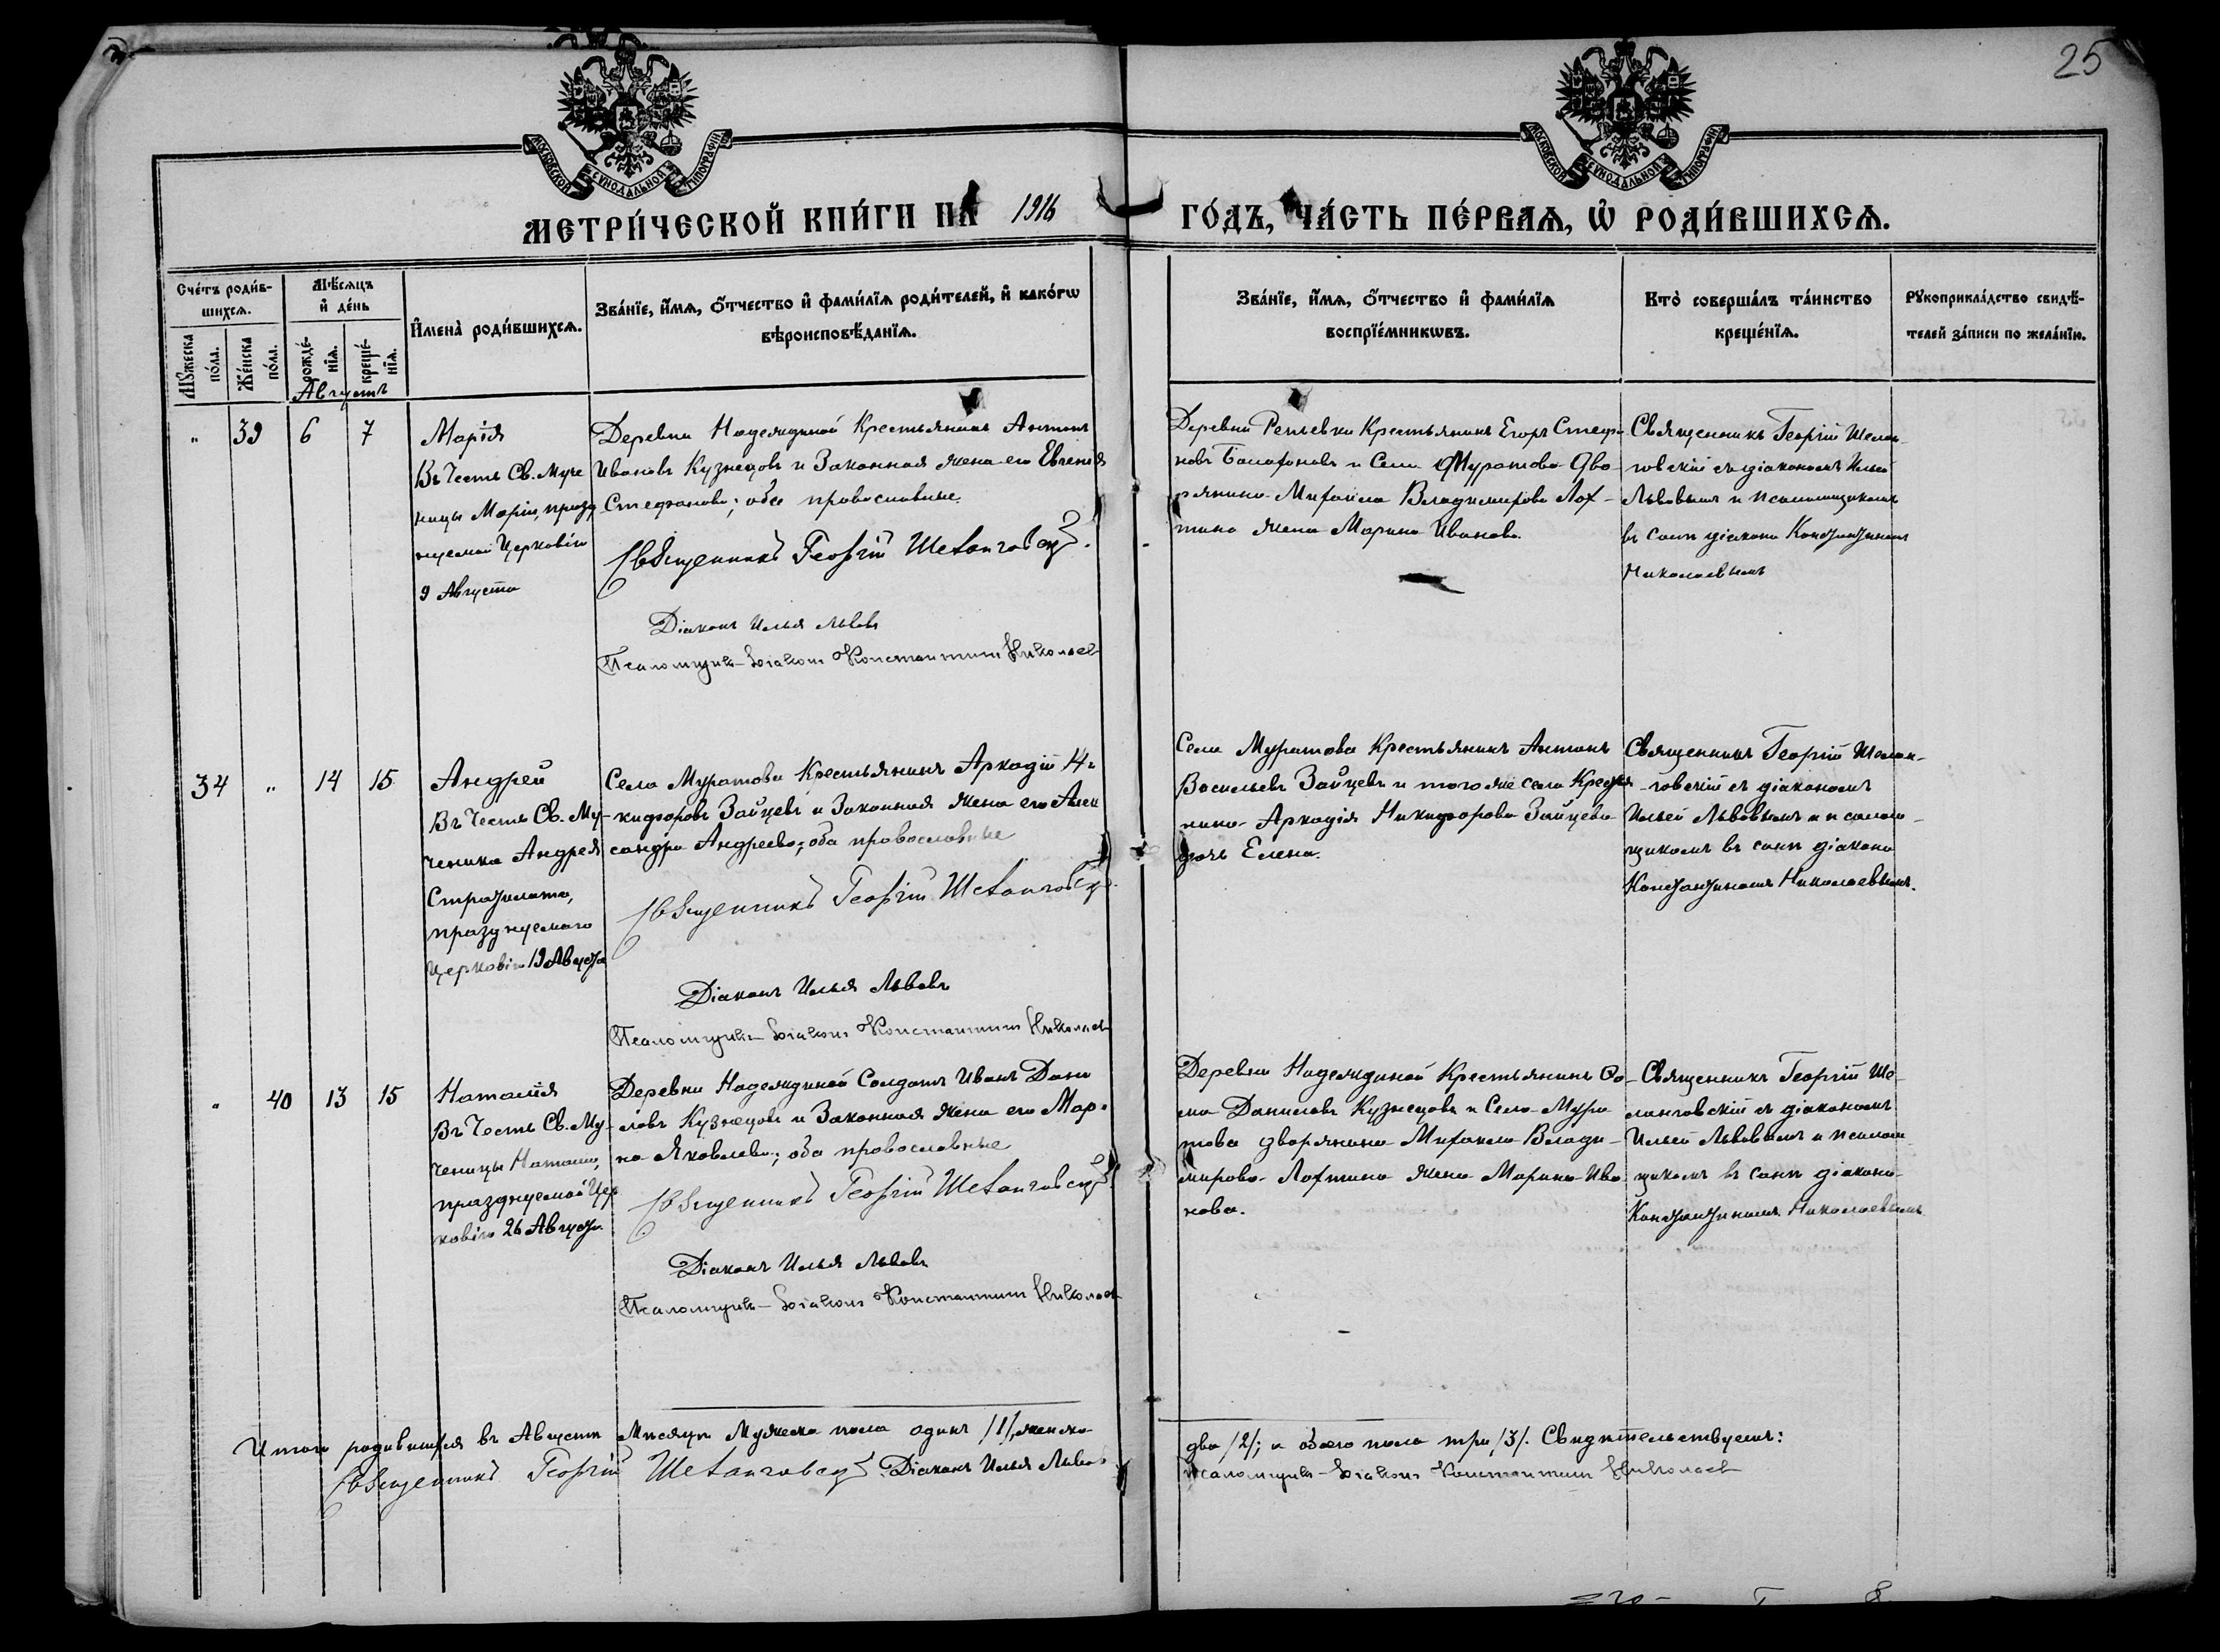 25
МОСКОВСКОЙ СѴНОДАЛЬНОЙ ТИПОГРАФІИ
МОСКОВСКОЙ СѴНОДАЛЬНОЙ ТИПОГРАФІИ
МЕТРИ́ЧЕСКОЙ КНИ́ГИ НА 1916 ГО́ДЪ, ЧА́СТЬ ПЕ́РВАѦ, Ѡ РОДИ́ВШИХСѦ.
Сче́тъ роди́в-
шихсѧ.
Мꙋ́жеска
по́ла.
Же́нска
по́ла.
Мѣ́сѧцъ
и҆ де́нь
рожде́-
нїѧ.
креще́-
нїѧ.
И҆мена̀ роди́вшихсѧ.
Зва́нїе, и҆́мѧ, ѻ҆́тчество и҆ фами́лїѧ роди́телей, и҆ како́гѡ
вѣроисповѣ́данїѧ.
Зва́нїе, и҆́мѧ, ѻ҆́тчество и҆ фами́лїѧ
воспрїе́мникѡвъ.
Кто̀ соверша́лъ та́инство
креще́нїѧ.
Рꙋкоприкла́дство свидѣ́-
телей за́писи по жела́нїю.
Августъ
" 39 6 7
Марія
Въ Честь Св. Муче
ницы Маріи, празд
нуемой Церковію
9 Августа
Деревни Надеждиной Крестьянинъ Антонъ
Ивановъ Кузнецовъ и Законная жена его Евгенія
Стефанова; оба православные
Священникъ Георгій Шелонговскій.
Діаконъ Илья Львовъ
Псаломщикъ-Діаконъ Константинъ Николаев
Деревни Репьевки Крестьянинъ Егоръ Стефа
новъ и Села Муратова Дво
рянина Михаила Владимирова Лох-
тина жена Марина Иванова.
Священникъ Георгій Шелон
говскій съ діакономъ Ильей
Львовымъ и псаломщикомъ
въ санѣ діакона Константиномъ
Николаевымъ
34 " 14 15
Андрей
Въ Честь Св. Му-
ченика Андрея
Стратилата,
празднуемаго
Церковію 19 Августа
Села Муратова Крестьянинъ Аркадій Ни
кифоровъ Зайцевъ и Законная жена его Алек
сандра Андреева; оба православные
Священникъ Георгій Шелонговскій.
Діаконъ Илья Львовъ
Псаломщикъ-Діаконъ Константинъ Николаев
Села Муратова Крестьянинъ Антонъ
Васильевъ Зайцевъ и того же села Крестья
нина Аркадія Никифорова Зайцева
дочь Елена.
Священникъ Георгій Шелон-
-говскій съ діакономъ
Ильей Львовымъ и псалом-
щикомъ въ санѣ діакона
Константиномъ Николаевымъ.
" 40 13 15
Наталія
Въ Честь Св. Му-
ченицы Наталіи,
празднуемой Цер
ковію 26 Августа
Деревни Надеждиной Солдатъ Иванъ Дани
ловъ Кузнецовъ и Законная жена его Мар-
на Яковлева; оба православные
Священникъ Георгій Шелонговскій
Діаконъ Илья Львовъ
Псаломщикъ-Діаконъ Константинъ Николаев
Деревни Надеждиной Крестьянинъ Ѳо-
ма Даниловъ Кузнецовъ и Села Мура
това дворянина Михаила Влади-
мирова Лохтина жена Марина Ива
нова.
Священникъ Георгій Ше-
лонговскій съ діакономъ
Ильей Львовымъ и псалом-
щикомъ въ санѣ діакона
Константиномъ Николаевымъ
Итого родившихся въ Августѣ Мѣсяцѣ Мужеска пола одинъ /1/, женска
два /2/; и обоего пола три /3/. Свидѣтельствуемъ:
Священникъ Георгій Шелонговскій. Діаконъ Илья Львов
Псаломщикъ-Діаконъ Константинъ Николаев